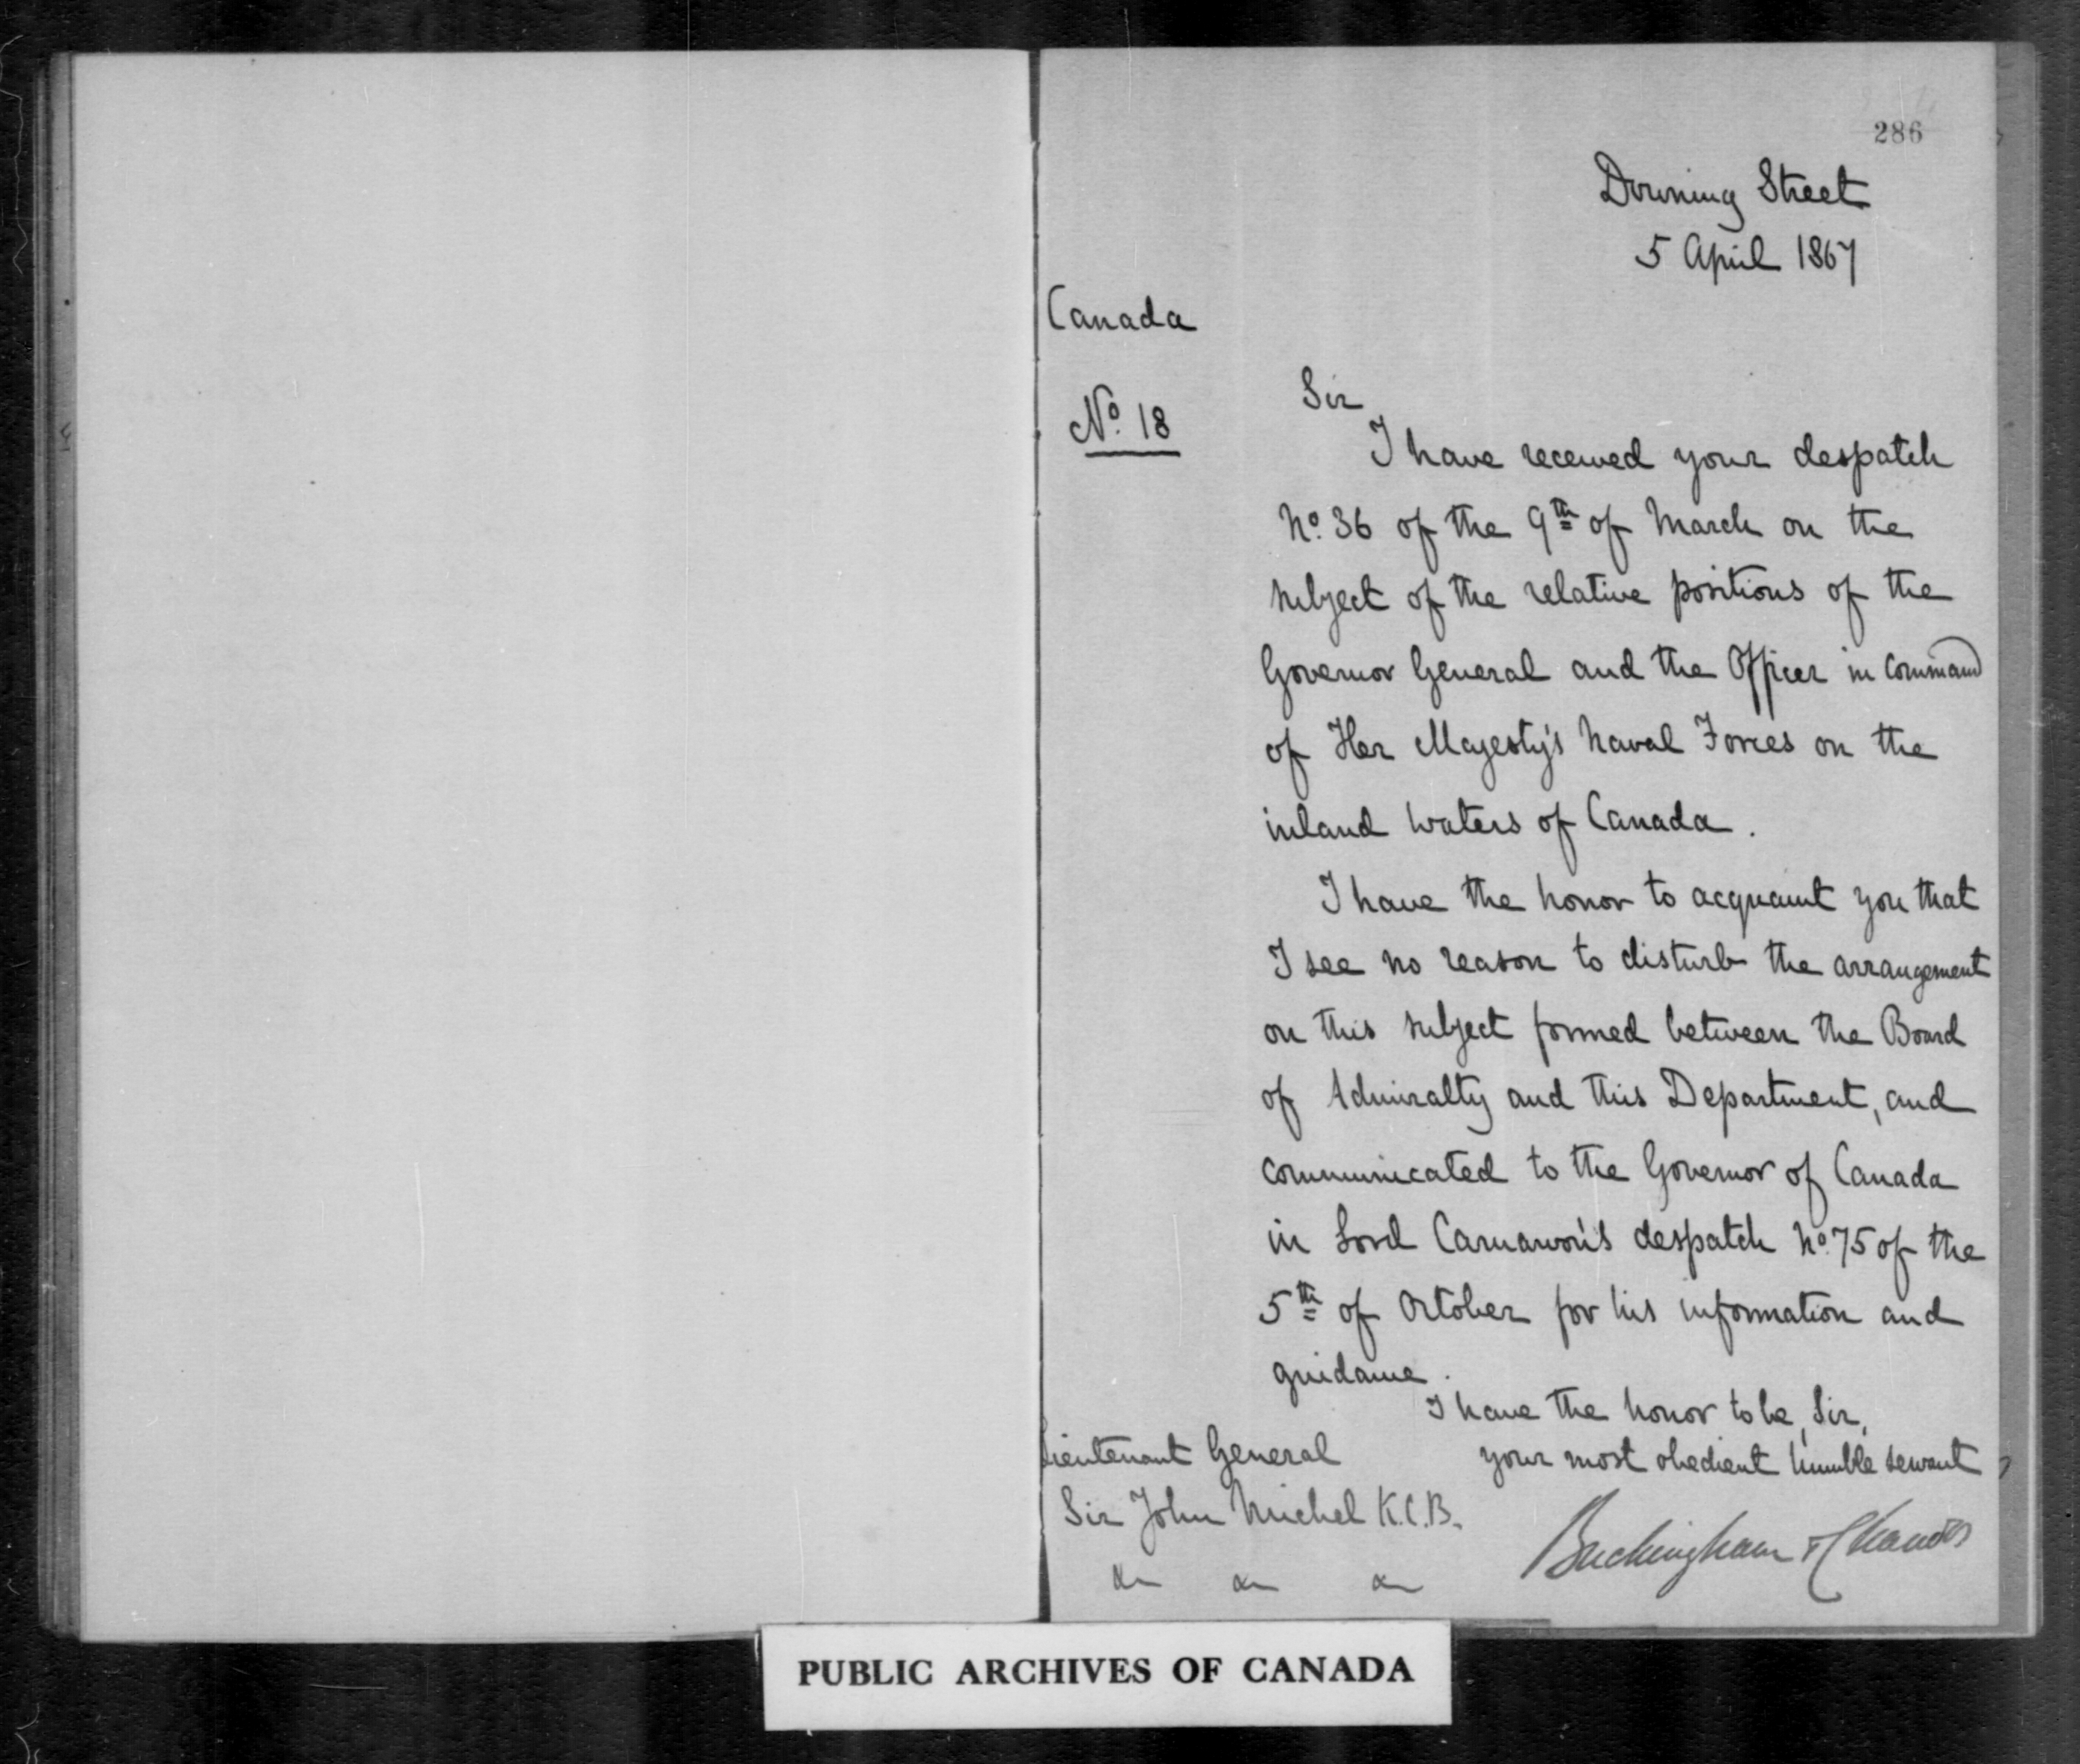 286
Downing Street
5 April 1867
Canada
No. 18
Sir
I have received your despatch
No. 36 of the 9th of March on the
subject of the relative positions of the
Governor General and the Officer in Command
of Her Majesty's Naval Forces on the
inland waters of Canada.
I have the honor to acquaint you that
I see no reason to disturb the arrangement
on this subject formed between the Board
of Admiralty and this Department, and
communicated to the Governor of Canada
in Lord Carnarvon's despatch No. 75 of the
5th of October for his information and
guidance.
I have the honor to be, Sir,
your most obedient humble servant
Lieutenant General
Sir John Michel K.C.B.
&c &c &c
Buckingham & Chandos
PUBLIC ARCHIVES OF CANADA